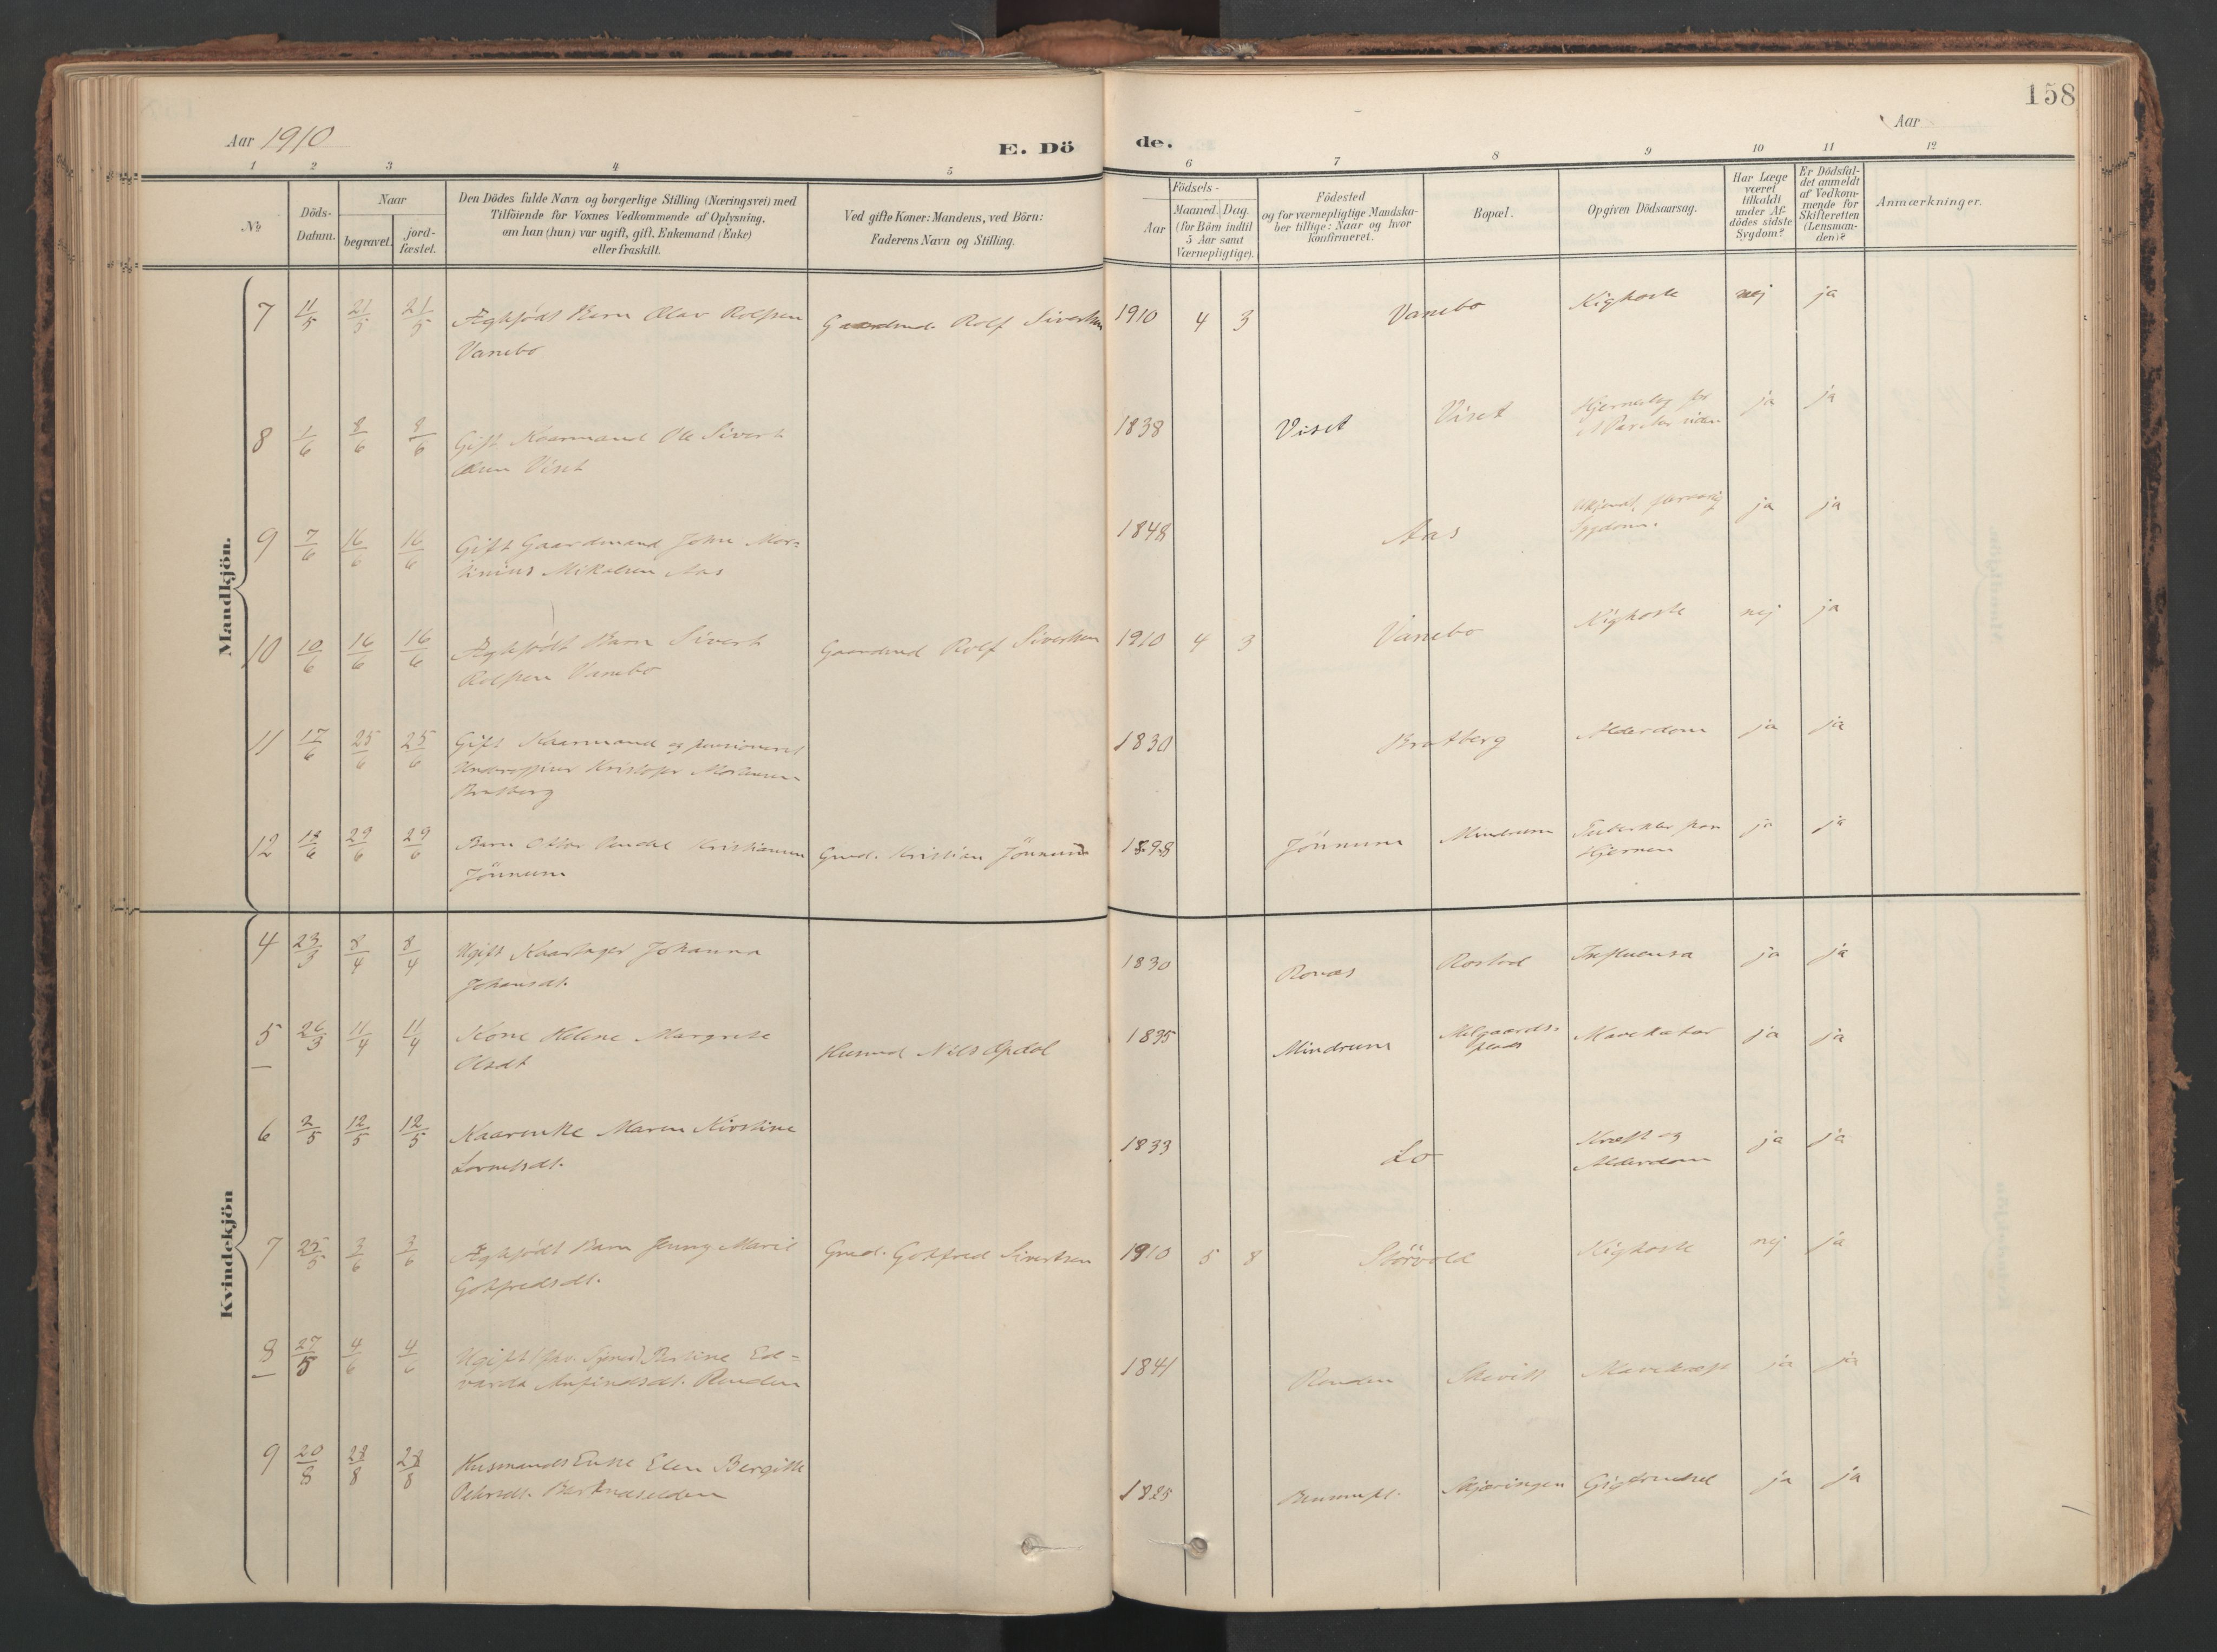 158
Aar 1910
E. Dö
de.
Aar
1 2 3 4 5 6 7 8 9 10 11 12
No
Döds-
Datum.
Naar
begravet.
jord-
fæstet.
Den Dödes fulde Navn og borgerlige Stilling (Næringsvei) med
Tilföiende for Voxnes Vedkommende af Oplysning,
om han (hun) var ugift, gift, Enkemand (Enke)
eller fraskilt.
Ved gifte Koner: Mandens, ved Börn:
Faderens Navn og Stilling.
Födsels-
Aar
Maaned. Dag.
(for Börn indtil
5 Aar samt
Værnepligtige).
Födested
og for værnepligtige Mandska-
ber tillige: Naar og hvor
konfirmeret.
Bopæl.
Opgiven Dödsaarsag.
Har Læge
været
tilkaldt
under Af-
dödes sidste
Sygdom?
Er Dödsfal-
det anmeldt
af Vedkom-
mende for
Skifteretten
(Lensman-
den)?
Anmærkninger.
Mandkjön.
7 11/5 21/5 21/5 Ægtefødt Barn Olav Rolfsen Gaardmd. Rolf Sivertsen 1910 4 3 Vanebo Kighoste nej ja
Vanebo
8 1/6 8/6 8/6 Gift Kaarmand Ole Sivert 1838 Viset Viset ja ja
Viset
9 7/6 16/6 16/6 Gift Gaardmand John Mor- 1848 Aas ja ja
tinius Mikalsen Aas Sygdom.
10 10/6 16/6 16/6 Ægtefødt Barn Sivert Gaardmd Rolf Sivertsen 1910 4 3 Vanebo Kighoste nej ja
Rolfsen Vanebo
11 17/6 25/6 25/6 Gift Kaarmand og pensioneret 1830 Bratberg Alderdom ja ja
Underofficer Kristofer
Bratberg
12 18/6 29/6 29/6 Barn Kristiansen Gmd. Kristian Jönnum 1898 Jönnum Mindrum ja ja
Jönnum Hjernen
Kvindekjön
4 23/3 8/4 8/4 Ugift Kaartager Johanna 1830 Rostad Influensa ja ja
Johansdt.
5 26/3 11/4 11/4 Kone Helene Margrete Husmd Nils Opdal 1835 Mindrum Melgaards- Mavekatar ja ja
Olsdt plads
6 2/5 12/5 12/5 Kaarenke Maren Kirstine 1833 Lo Kræft og ja ja
Lorntsdt. Alderdom
7 25/5 3/6 3/6 Ægtefødt Barn Jenny Marie Gmd. Gotfred Sivertsen 1910 5 8 Störvold Kighoste nej ja
Gotfredsdt.
8 27/5 4/6 4/6 Ugift Ed- 1841 Renden Mavekræft ja ja
varda Anfindsdt. Renden
9 20/8 28/8 28/8 Husmands Enke Elen Bergitte 1825 Skjæringen Gigtbrudel ja ja
Petersdt.